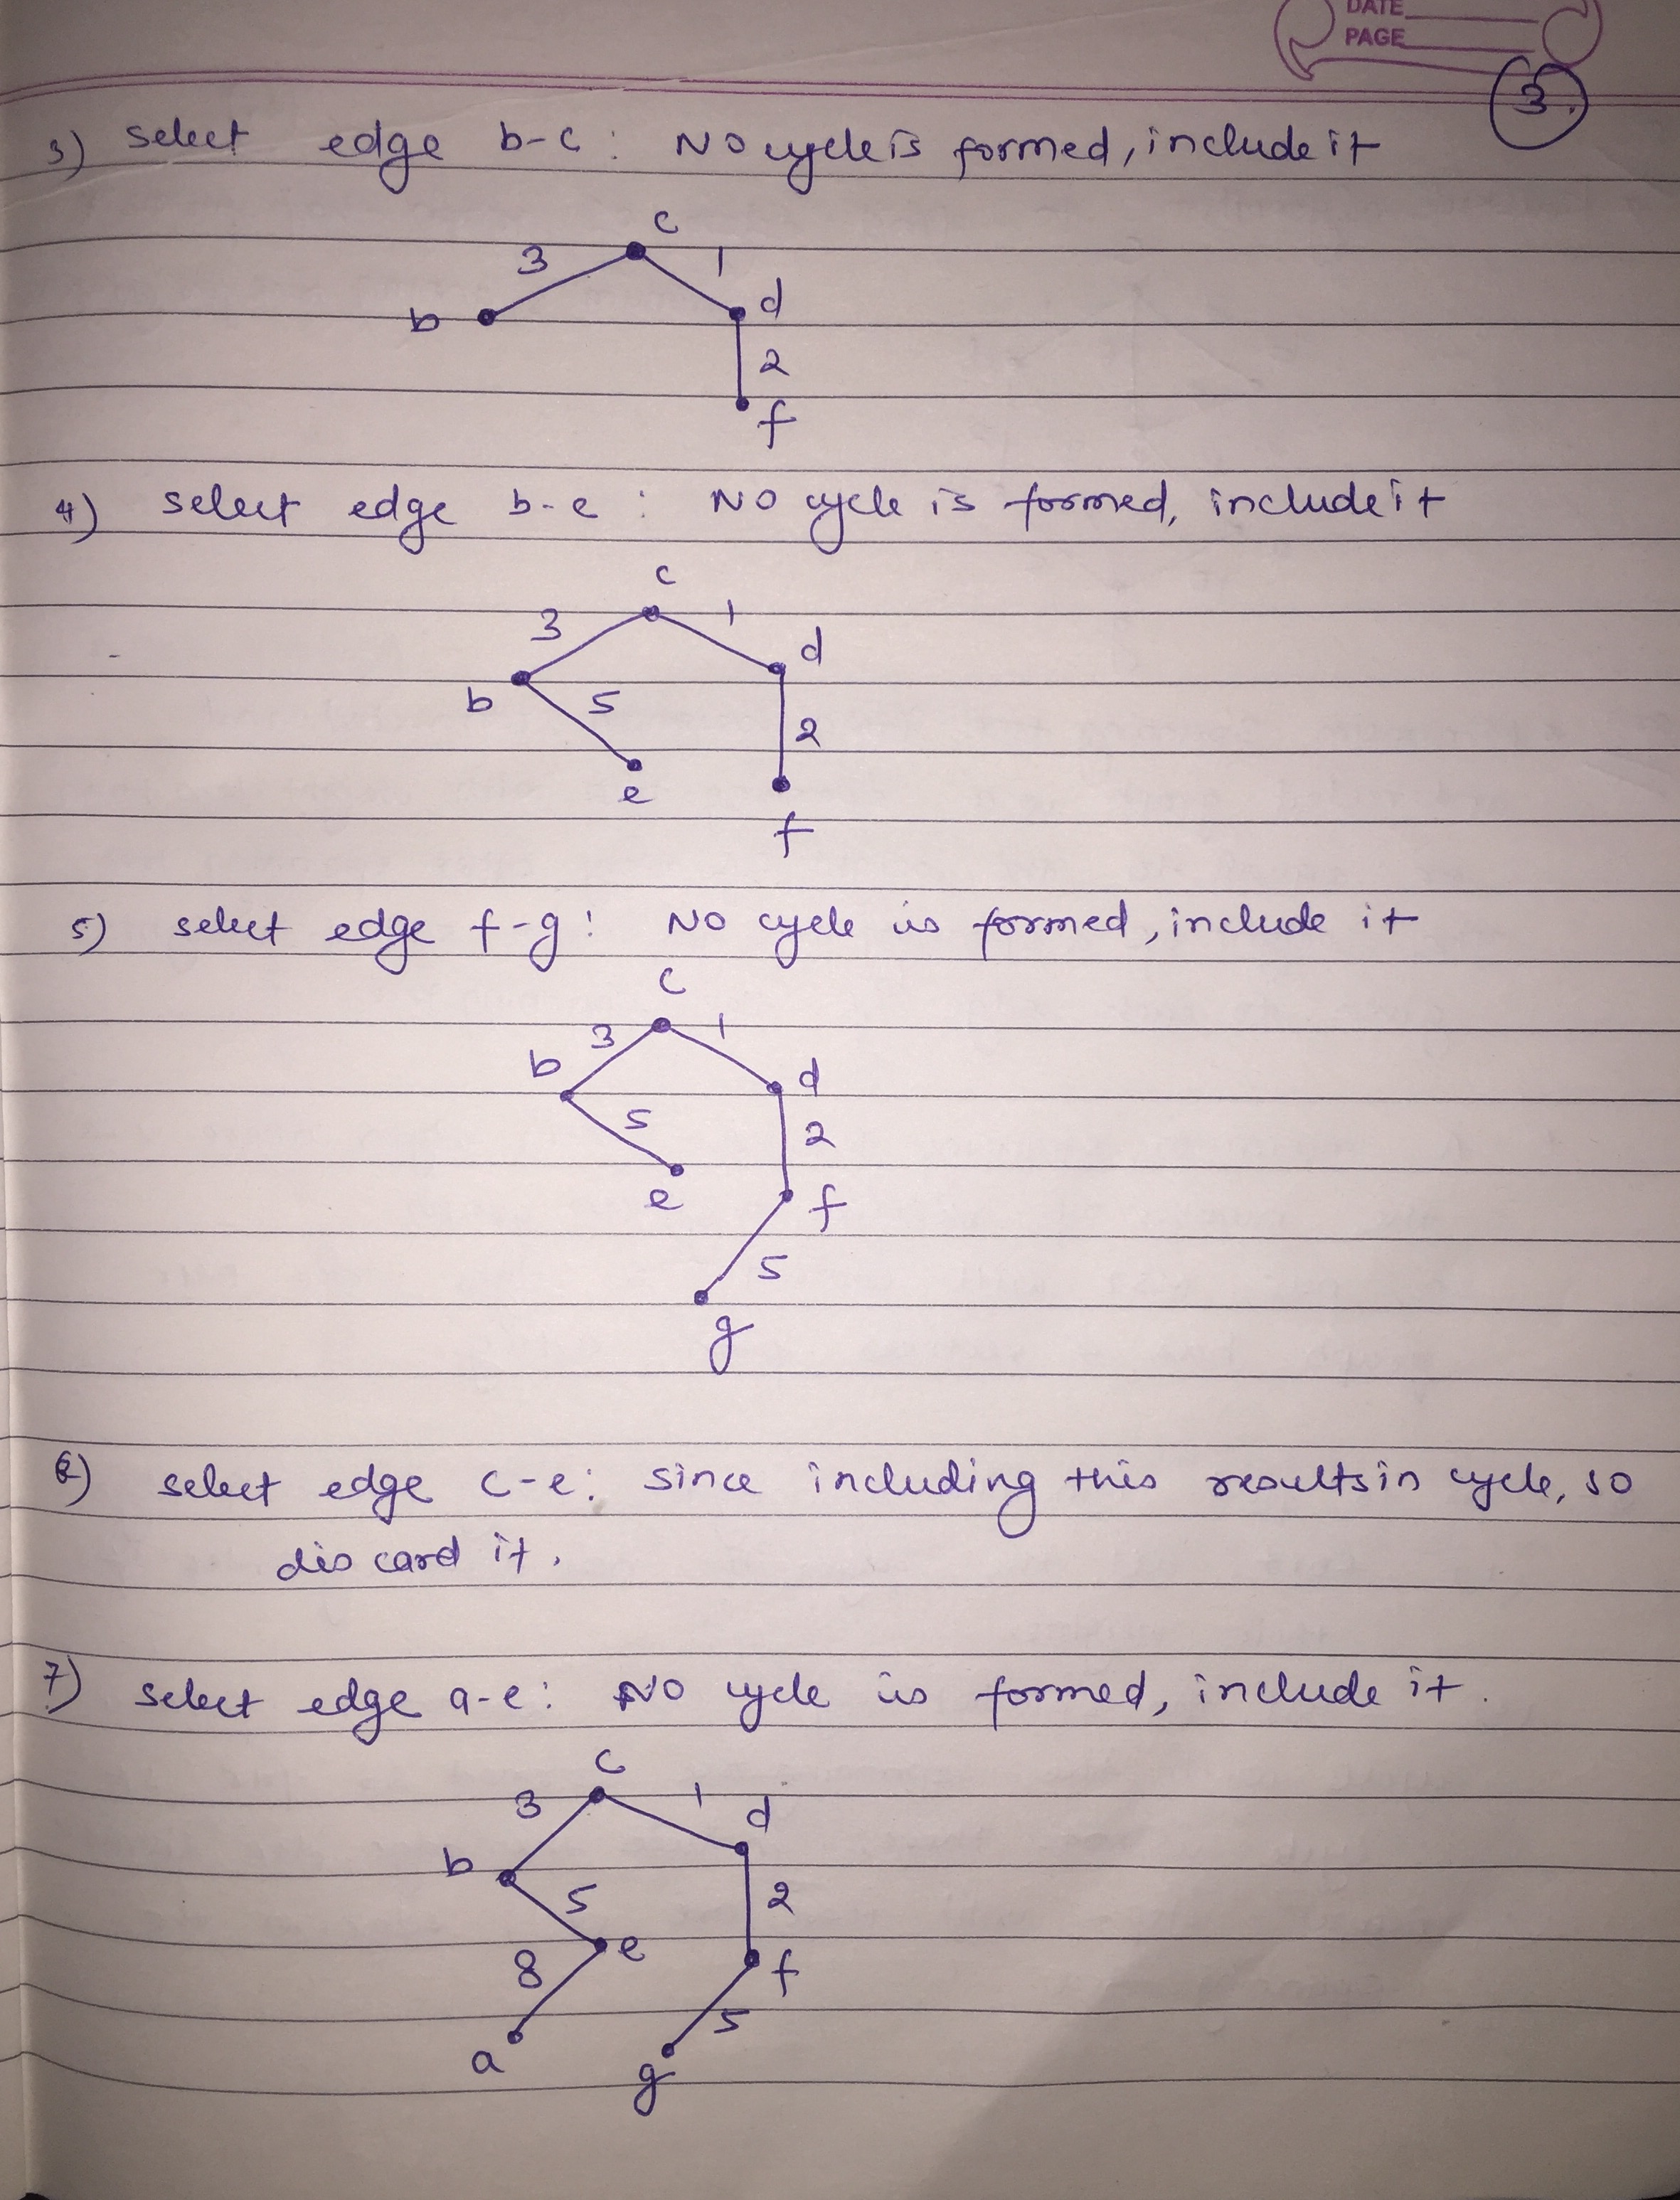 DATE
PAGE
3.
3) select edge b-c : No cycle is formed, include it
c
3 1
b d
2
f
4) select edge b-e : No cycle is formed, include it
c
3 1
d
b 5
2
e
f
5) select edge f-g : No cycle is formed, include it
c
3 1
b d
5 2
e f
5
g
6) select edge c-e : since including this results in cycle, so
discard it.
7) select edge a-e : No cycle is formed, include it.
c
3 1 d
b
5 2
8 e f
5
a g